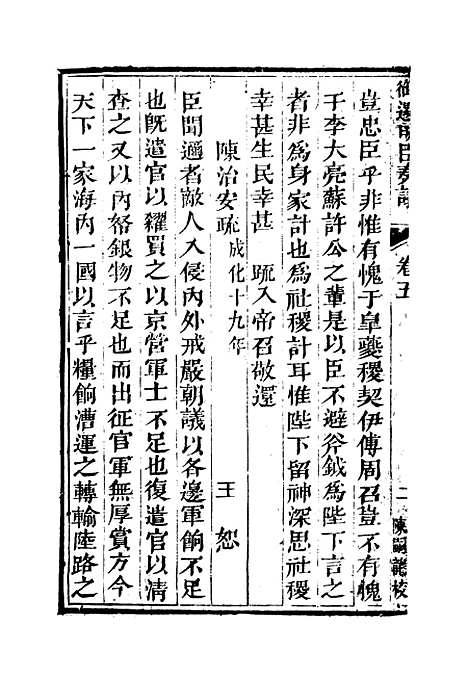 御選明臣奏議 卷五 二
豈忠臣乎非惟有愧于皐夔稷契伊傅周召豈不有愧
于李大亮蘇許公之輩是以臣不避斧鉞為陛下言之
者非為身家計也為社稷計耳惟陛下留神深思社稷
幸甚生民幸甚 疏入帝召敬還
陳治安疏成化十九年 王恕
臣聞邇者敵人入侵內外戒嚴朝議以各邊軍餉不足
也既遣官以糴買之以京營軍士不足也復遣官以清
查之又以內帑銀物不足也而出征官軍無厚賞方今
天下一家海內一國以言乎糧餉漕運之轉輸陸路之